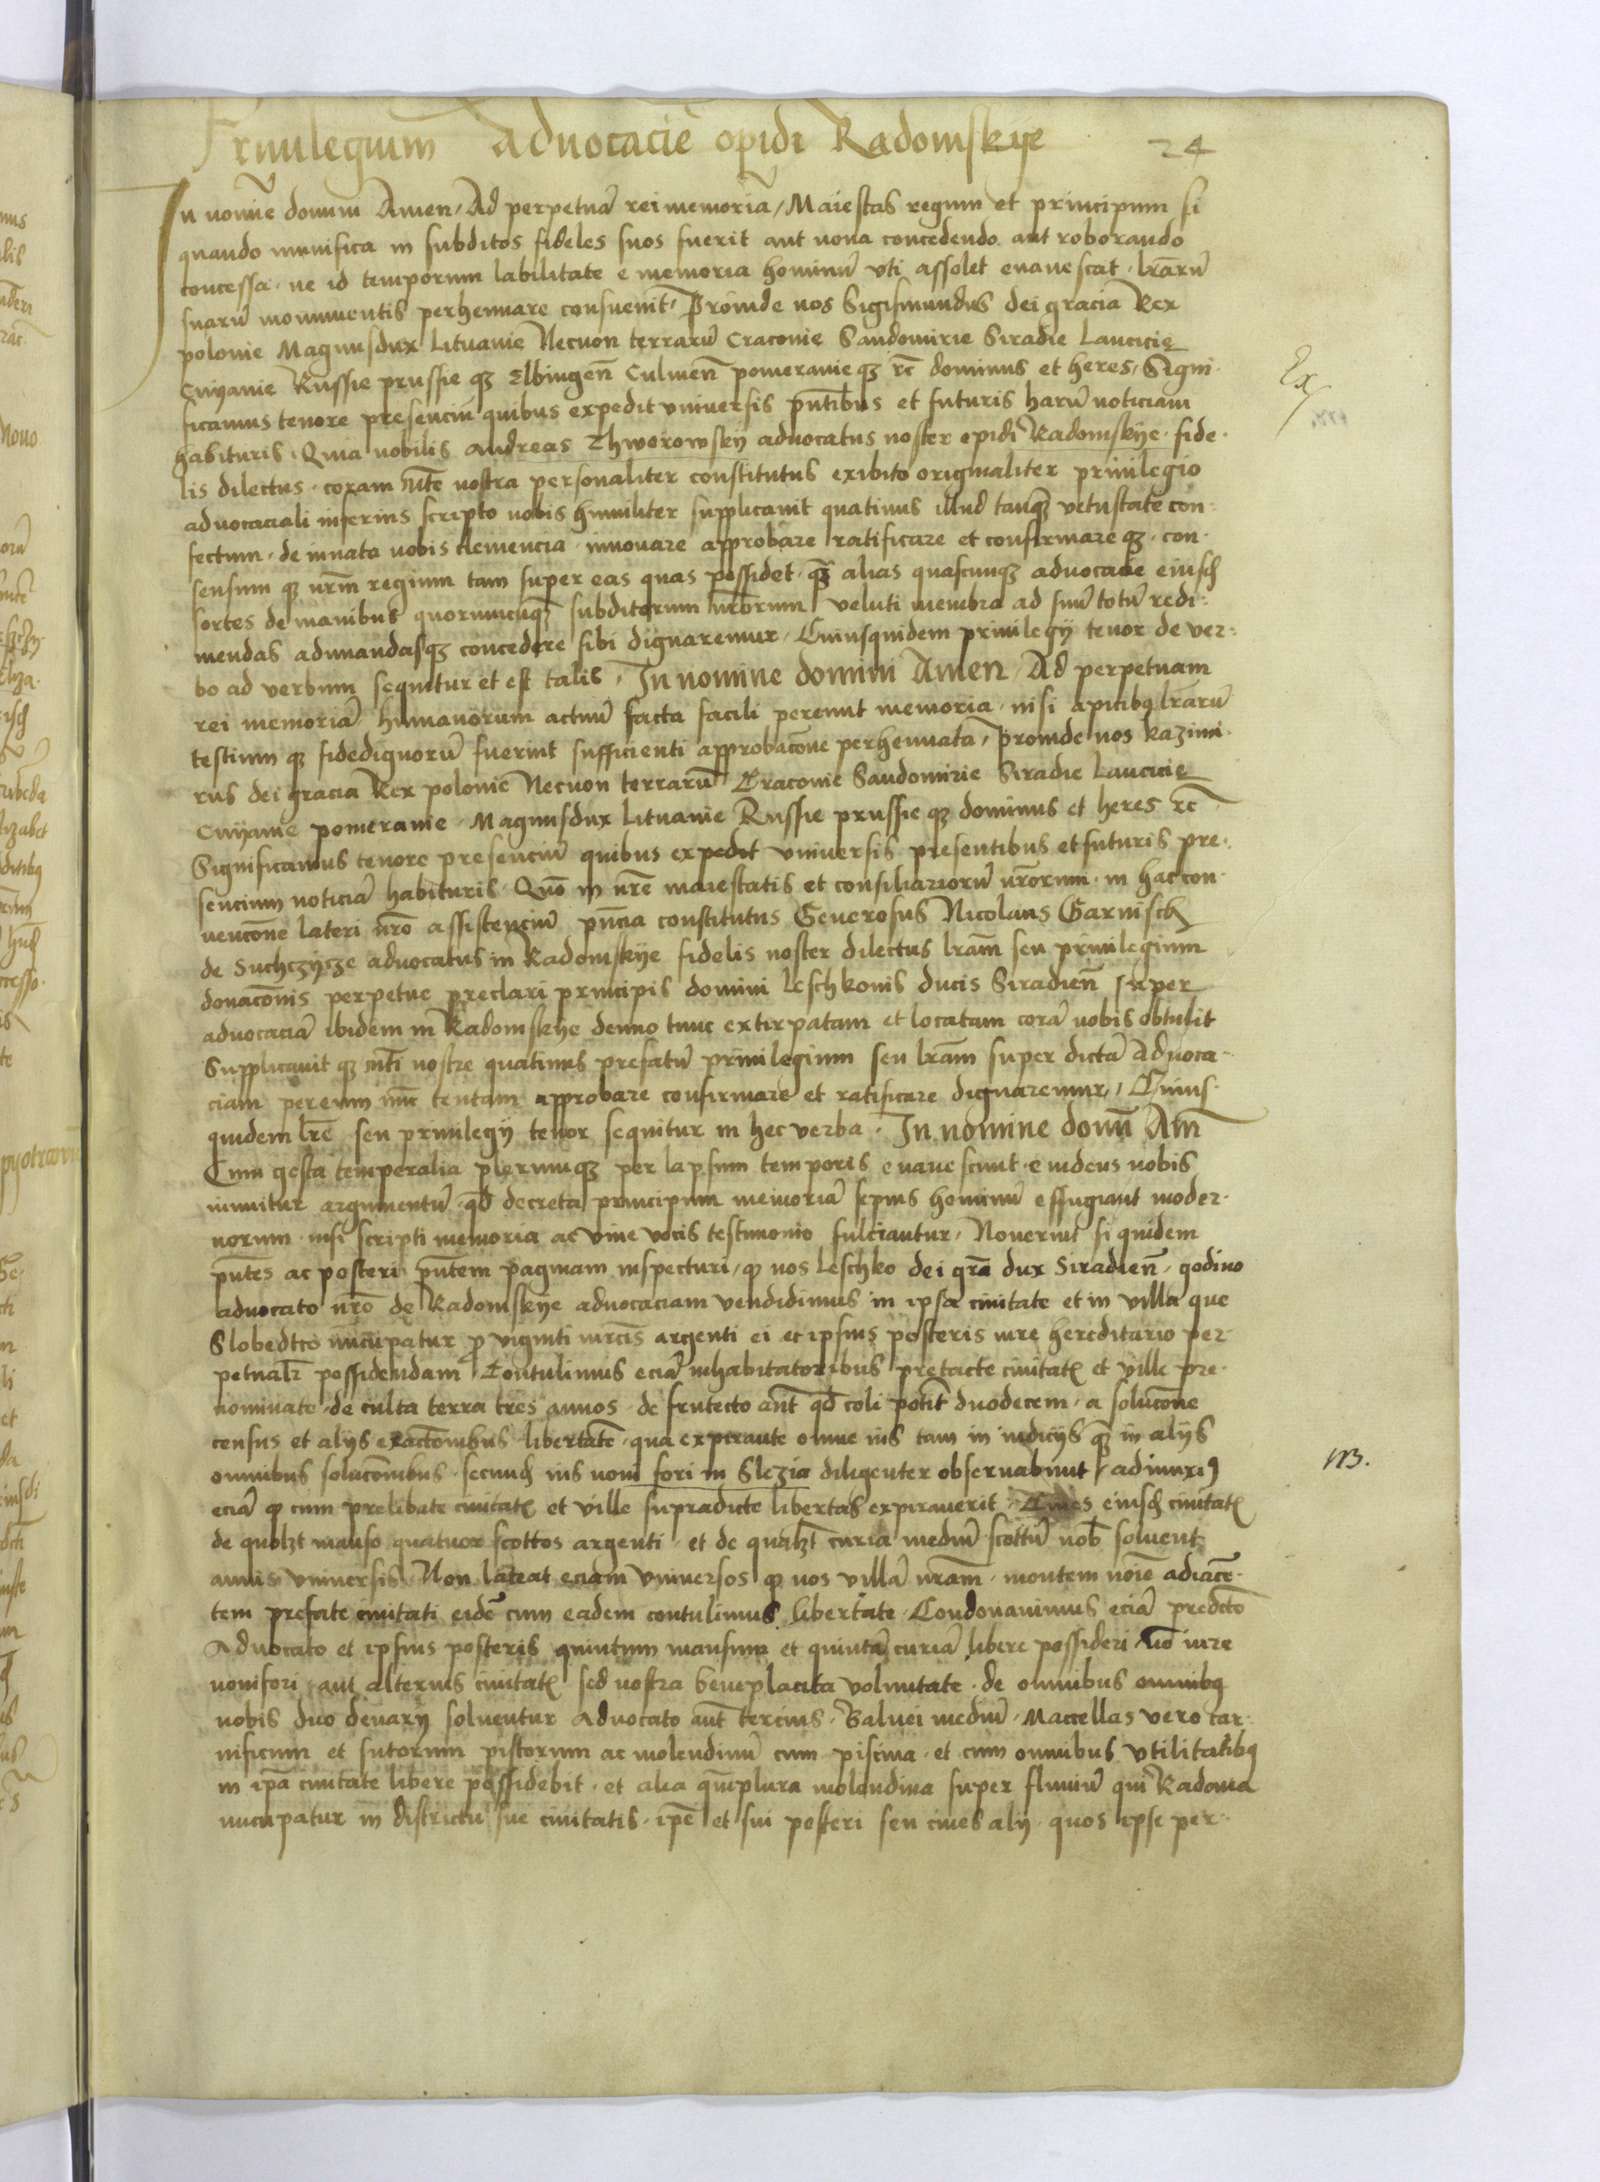 Priuilegium Aduocacie opidi Radomskye 24
In nomine domini Amen, Ad perpetuā rei memoriā, Maiestas regum et principum si
quando munifica in subditos fideles suos fuerit aut noua concedendo aut roborando
concessa · ne id temporum labilitate e memoria hominū vti assolet euanescat · lrārū
suarū monumentis perhennare consueuit, Proinde nos Sigismundus dei gracia Rex
polonie Magnusdux Lituanie Necnon terrarū Cracouie Sandomirie Siradie Lancicie
Cuyauie Russie prussie qȝ Elbingeñ Culmeñ pomeranie qȝ rc̄ dominus et heres, Signi-
ficamus tenore presenciū quibus expedit vniuersis pn̄tibus et futuris harū noticiam
habituris, Quia nobilis Andreas Zhworowsky aduocatus noster opidi Radomskye · fide-
lis dilectus · coram mte nostra personaliter constitutus exibito originaliter priuilegio
aduocaciali inferius scripto nobis humiliter supplicauit quatinus illud tanqȝ vetustate con-
fectum · de innata nobis clemencia · innouare approbare ratificare et confirmare qȝ · con-
sensum qȝ nrm̄ regium tam super eas quas possidet · qȝ alias quascunqȝ aduocacie eiusd
sortes de manibus quorumcunqȝ subditorum nrōrum veluti membra ad suū totū redi-
mendas adunandasqȝ concedere sibi dignaremur, Cuiusquidem priuilegy tenor de ver-
bo ad verbum sequitur et est talis, In nomine domini Amen, Ad perpetuam
rei memoriā humanorum actuū facta facili pereunt memoria · nisi apicibꝯ lrārū
testium qȝ fidedignorū fuerint sufficienti approbacōne perhennata, Proinde nos Kazimi-
rus dei gracia Rex polonie Necnon terrarū Cracouie Sandomirie Siradie Lancicie
Cuyauie pomeranie, Magnusdux Lituanie Russie prussie qȝ dominus et heres rc̄
Significamus tenore presenciū quibus expedit vniuersis presentibus et futuris pre-
sencium noticiā habituris, Quō in nrē maiestatis et consiliariorū nrōrum · in hac con-
uencōne lateri nrō assistenciū pn̄cia constitutus Generosus Nicolaus Garnisch
de Suchczycze aduocatus in Radomskye fidelis noster dilectus lrām seu priuilegium
donacōnis perpetue preclari principis domini Leschkonis ducis Siradieñ super
aduocaciā ibidem in Radomskye denuo tunc extirpatam et locatam corā nobis obtulit
Supplicauit qȝ mti nostre quatinus prefatū priuilegium seu lrām super dictā Aduoca-
ciam pereum nūc tentam approbare confirmare et ratificare dignaremur, Cuius-
quidem lrē seu priuilegy tenor sequitur in hec verba · In nomine domī Am̄
Cum gesta temporalia plerumqȝ per lapsum temporis euanescunt · euidens nobis
innuitur argumentū qd̄ decreta principum memoriā sepius hominū effugiant moder-
norum · nisi scripti memoria ac viue vocis testimonio fulciantur, Nouerint siquidem
pn̄tes ac posteri pn̄tem paginam inspecturi, qȝ nos Leschko dei grā dux Siradieñ, godino
aduocato nrō de Radomskye aduocaciam vendidimus in ipsa ciuitate et in villa que
Slobedtco nūcupatur p viginti mrcis argenti ei et ipsius posteris iure hereditario per-
petualr̄ possidendam Contulimus eciā inhabitatoribus pretacte ciuitatꝭ et ville pre-
nominate · de culta terra tres annos · de frutecto aūt qd̄ coli potit duodecem · a solucōne
census et alijs exactōnibus libertatē · qua expirante omne ius tam in iudicijs qȝ in alijs
omnibus solucōnibus · secund ius noui fori in Slezia diligenter obseruabunt, adiunxiꝯ
eciā qȝ cum prelibate ciuitatꝭ et ville supradicte libertas expirauerit, Ciues eiusd ciuitatꝭ
de quolzt manso quatuor scottos argenti · et de qualzt curia mediū scottū nob̄ soluent
annis vniuersis, Non lateat eciam vniuersos qȝ nos villā nrām · montem noīe adiacē-
tem prefate ciuitati eidē cum eadem contulimus libertate, Condonauimus eciā predcto
Aduocato et ipsius posteris quintum mansum et quintā curiā libere possideri nō iure
nouifori aut alterius ciuitatꝭ sed nostra beneplacita voluntate · de omnibus omnibꝯ
nobis duo denarij soluentur Aduocato aūt tercius · Balnei mediū · Maccellas vero car-
nificum et sutorum pistorum ac molendinū cum piscina · et cum omnibus vtilitatibꝯ
in ipā ciuitate libere possidebit · et alia qm̄plura molendina super fluuiū qui Radomа
nūcupatur in districtu sue ciuitatis · ipē et sui posteri seu ciues alij · quos ipse per-
Ex
NB.